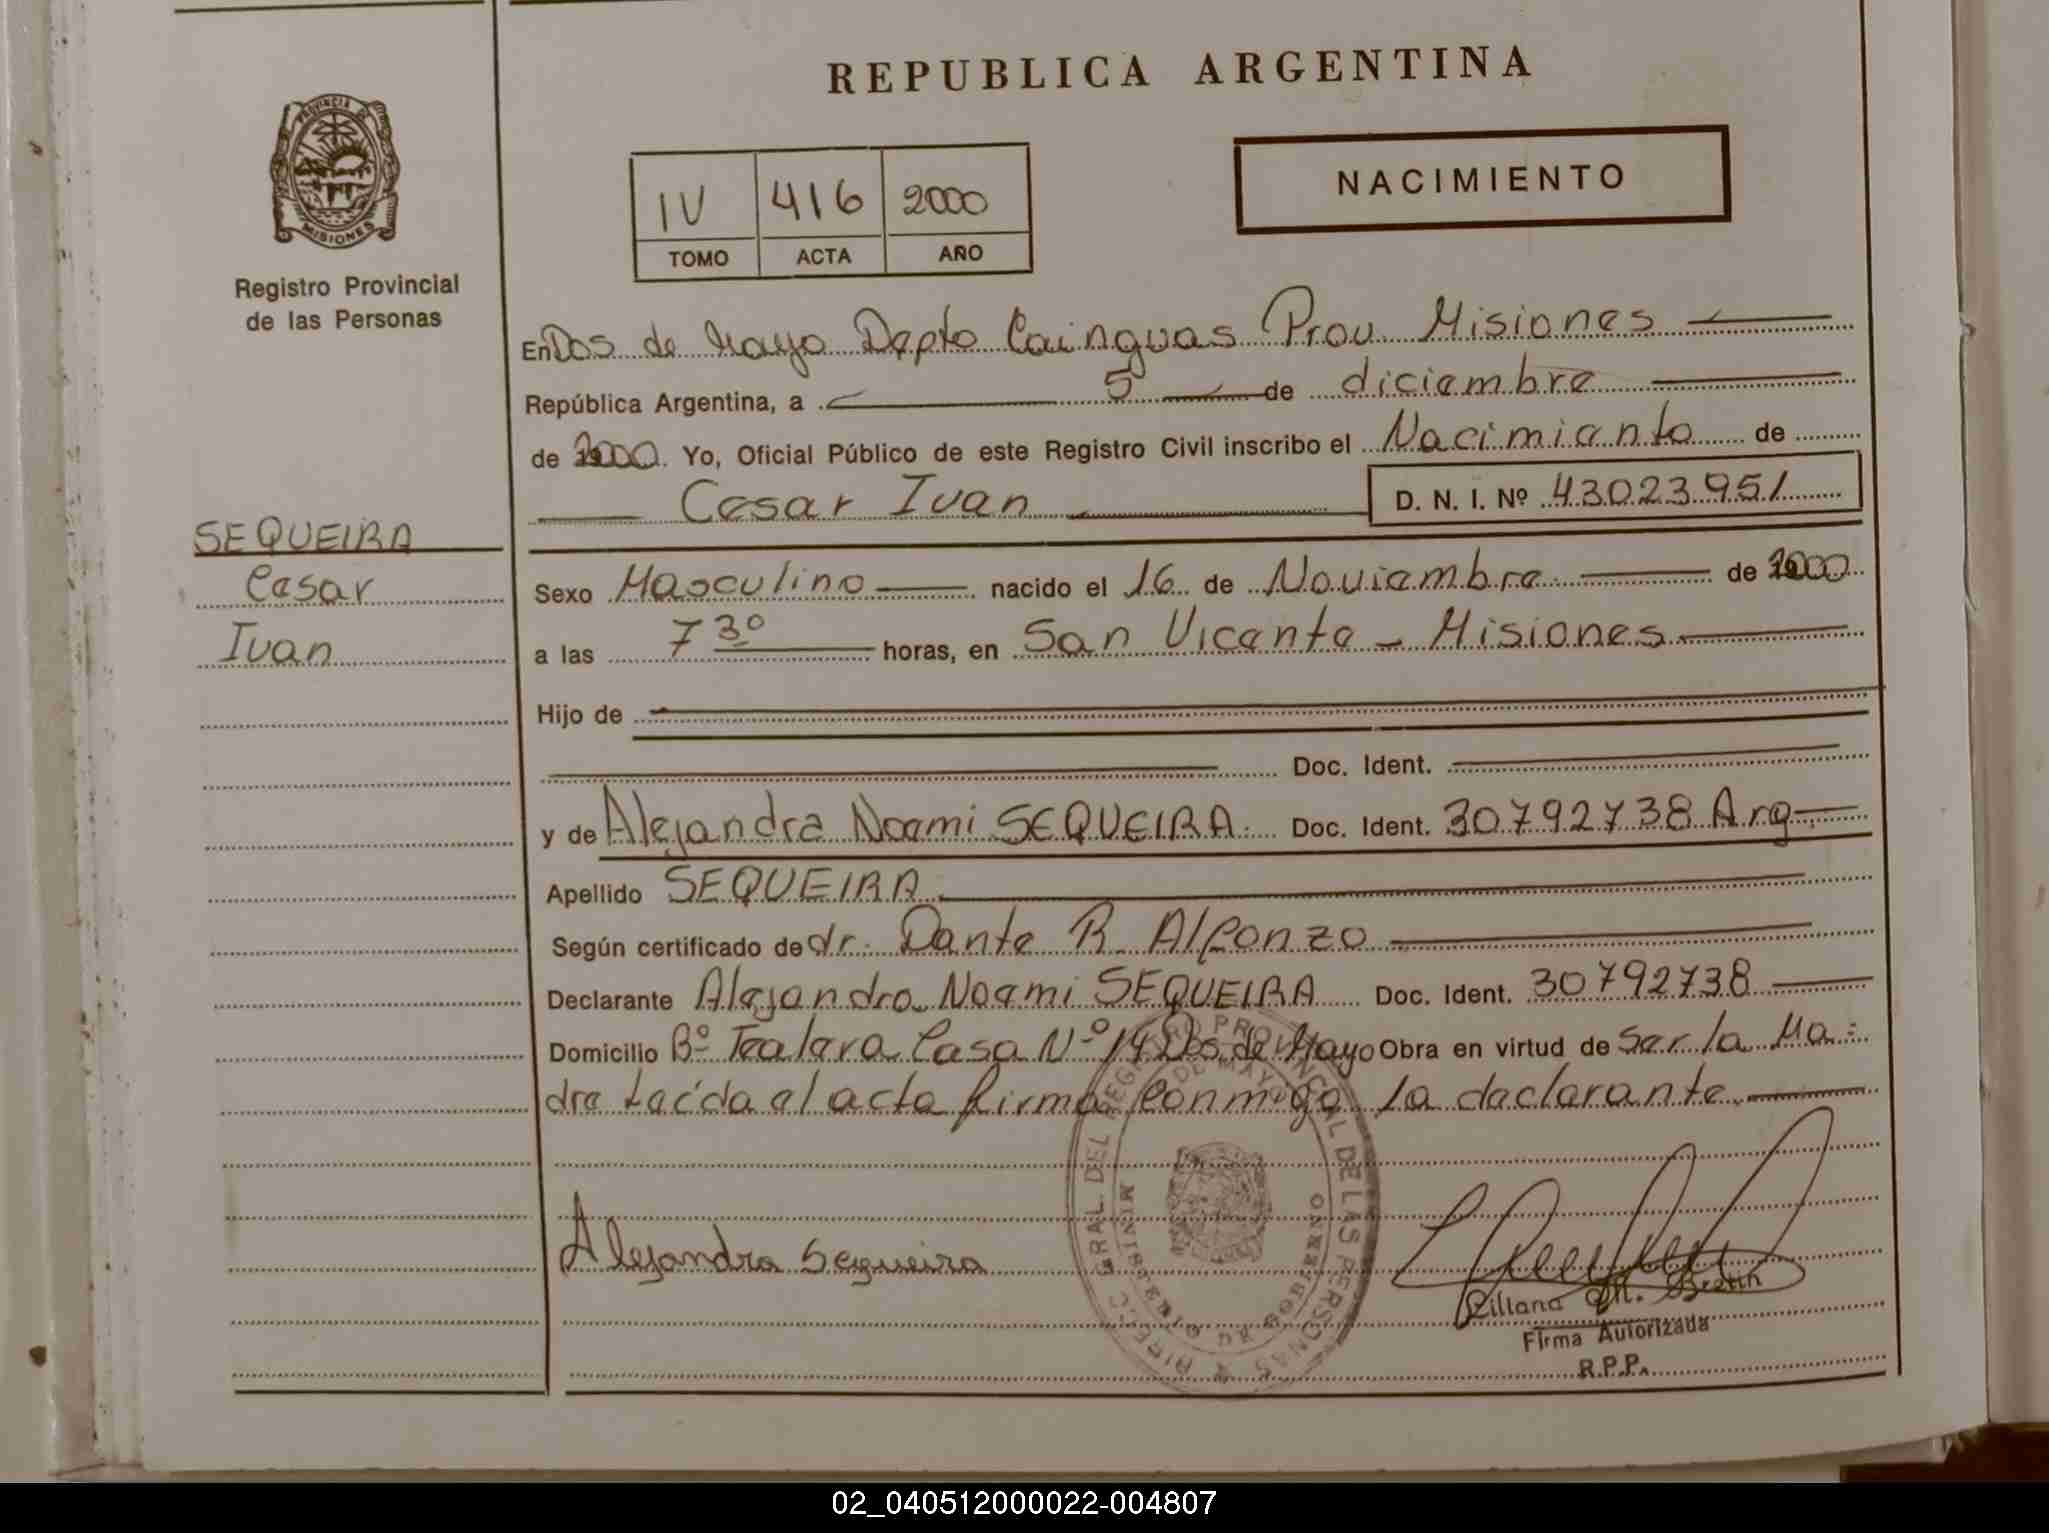 REPUBLICA ARGENTINA
PROVINCIA DE
MISIONES
Registro Provincial
de las Personas
IV 416 2000
TOMO ACTA AÑO
NACIMIENTO
En Dos de Mayo Depto Cainguas Prov. Misiones
República Argentina, a 5 de diciembre
de 2000. Yo, Oficial Público de este Registro Civil inscribo el Nacimiento de
Cesar Ivan D. N. I. Nº 43023951
SEQUEIRA
Cesar
Ivan
Sexo Masculino nacido el 16 de Noviembre de 2000
a las 7 30 horas, en San Vicente - Misiones
Hijo de
Doc. Ident.
y de Alejandra Noemi SEQUEIRA. Doc. Ident. 30792738 Arg.
Apellido SEQUEIRA
Según certificado de dr. Dante R. Alfonzo
Declarante Alejandra Noemi SEQUEIRA Doc. Ident. 30792738
Domicilio Bº Casa Nº 14 Dos de Mayo Obra en virtud de ser la Ma=
dre Leída el acta firma conmigo la declarante
DIRECC GRAL. DEL REGISTRO PROVINCIAL DE LAS PERSONAS
DE MAYO
MINISTERIO DE GOBIERNO
Alejandra Sequeira
Firma Autorizada
R.P.P.
02_040512000022-004807